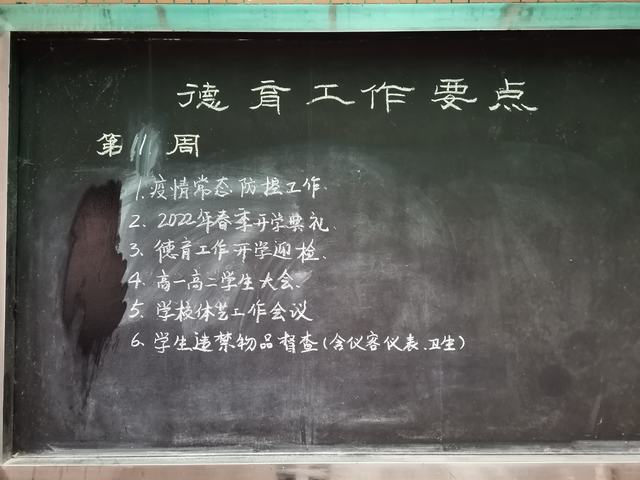 德育工作要点
第1周
1.疫情常态防控工作.
2、2022年春季开学典礼.
3、德育工作开学迎检、
4、高一高二学生大会、
5、学校体艺工作会议
6、学生违禁物品督查(含仪容仪表、卫生)